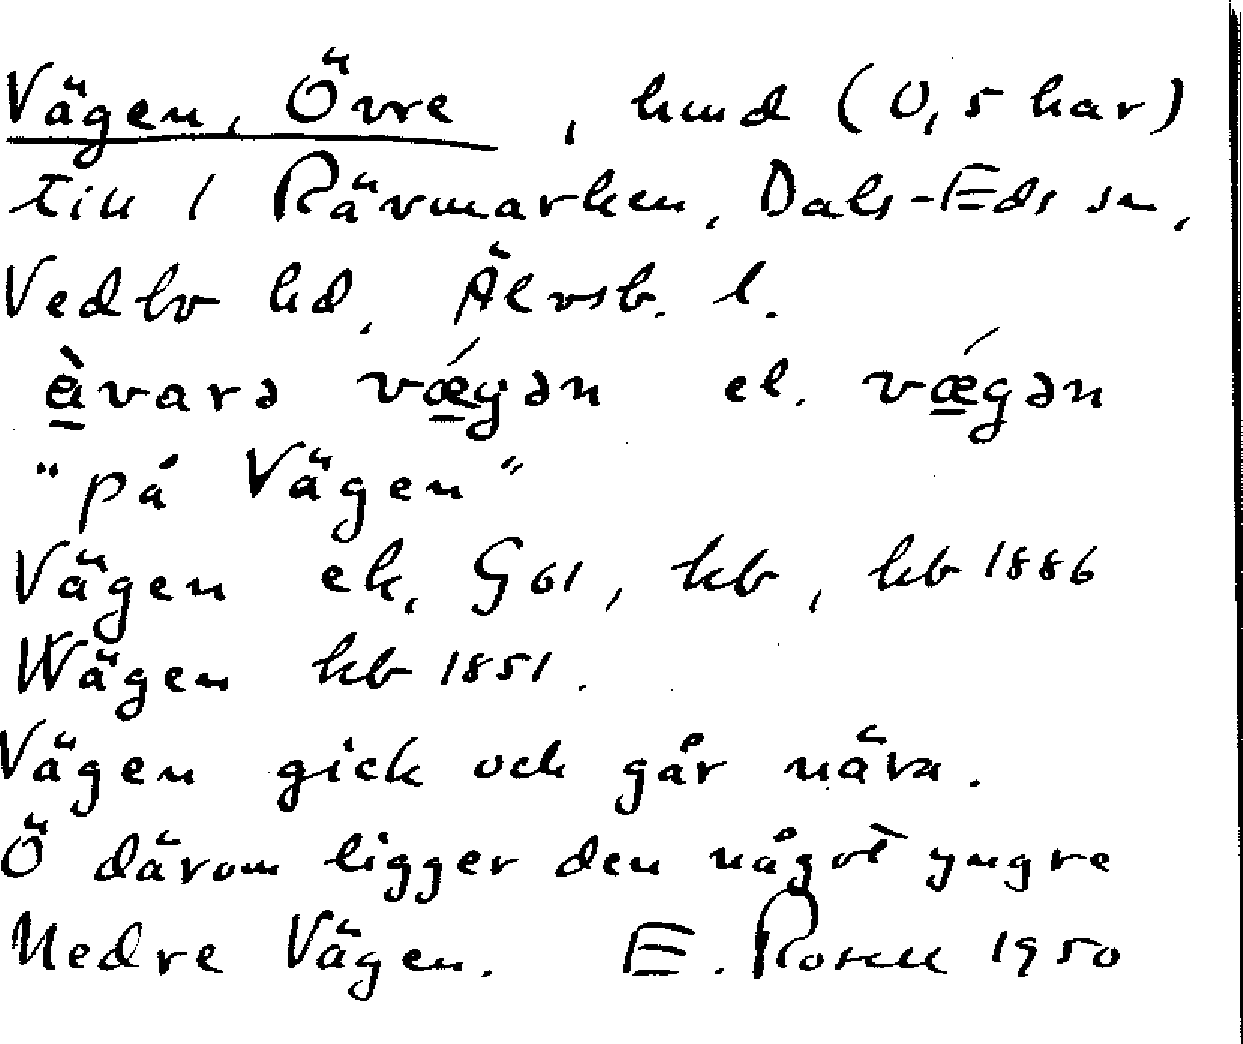 Vägen, Övre, hmd (0,5 har)
till 1 Rävmarken, Dals-Eds sn,
Vedbo hd, Älvsb. l.
è̱varə vǽ̱gən el. vǽ̱gən
"på Vägen"
Vägen ek, G61, kb, hb 1886
Wägen hb 1851.
Vägen gick och går nära.
Ö därom ligger den något yngre
Nedre Vägen. E. Rosell 1950